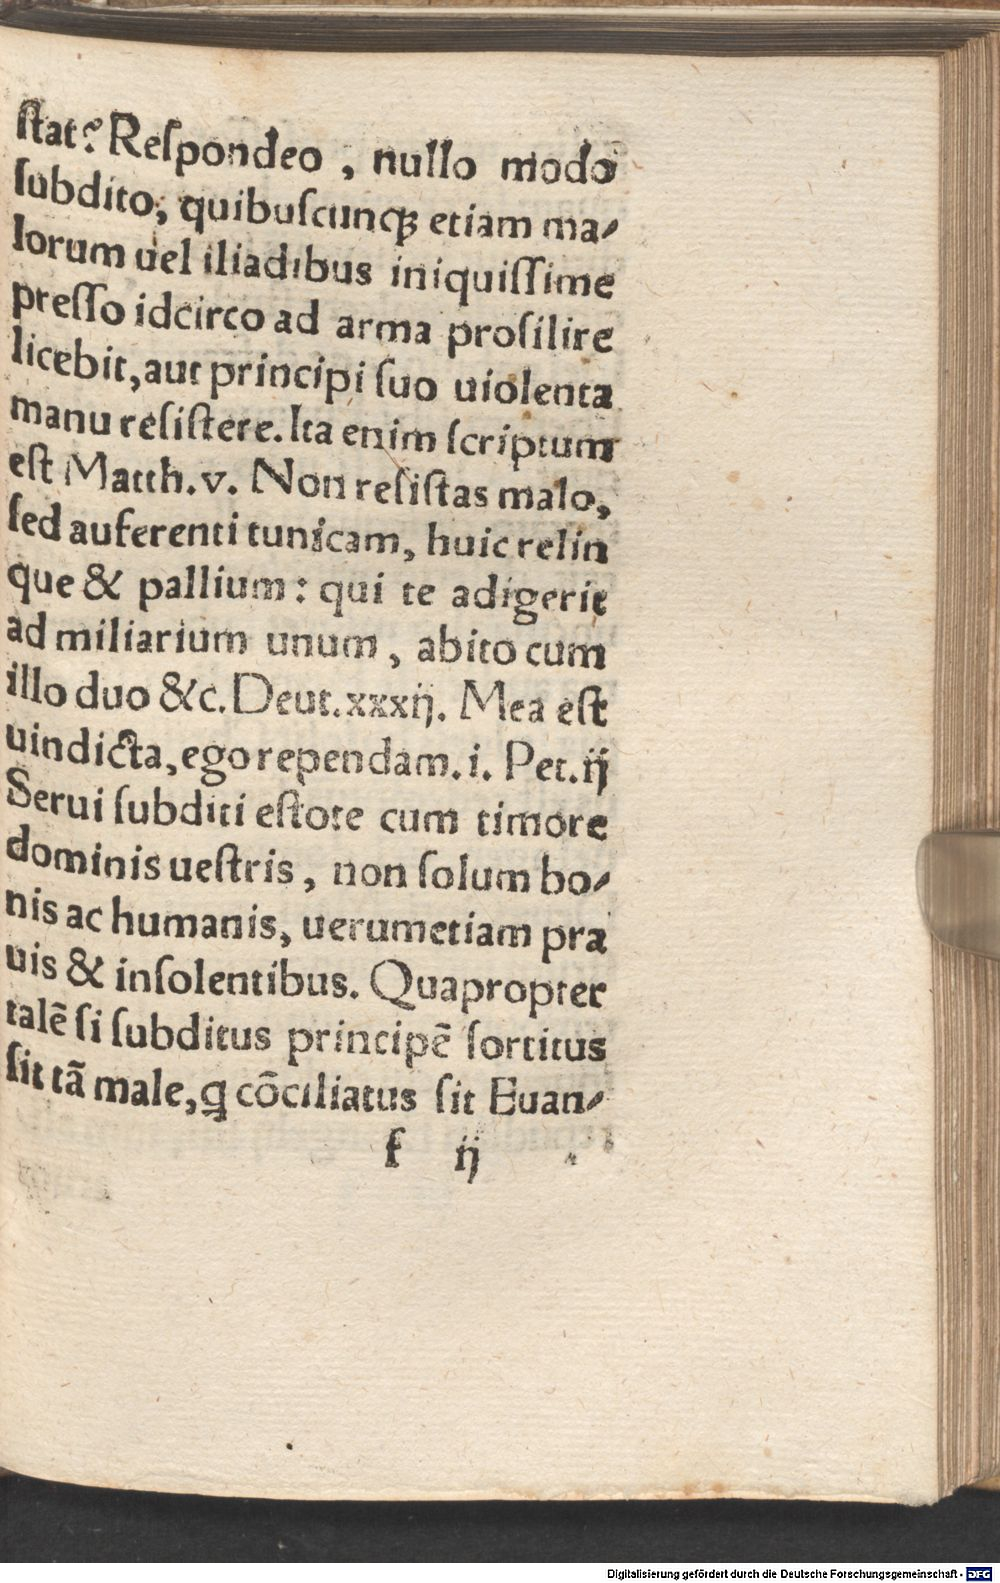 ſtat? Reſpondeo, nullo modo
ſubdito, quibuſcunqꝫ etiam ma⸗
lorum uel iliadibus iniquiſſime
preſſo idcirco ad arma proſilire
licebit, aut principi ſuo uiolenta
manu reſiſtere. Ita enim ſcriptum
eſt Matth. v. Non reſiſtas malo,
ſed auferenti tunicam, huic relin
que & pallium: qui te adigerit
ad miliarium unum, abito cum
illo duo &c. Deut. xxxij. Mea eſt
uindicta, ego rependam. i. Pet. ij
Serui ſubditi eſtote cum timore
dominis ueſtris, non ſolum bo⸗
nis ac humanis, uerumetiam pra
uis & inſolentibus. Quapropter
talē ſi ſubditus principē ſortitus
ſit tã male, ꝗ cōciliatus ſit Euan⸗
f ij
Digitalisierung gefördert durch die Deutsche Forschungsgemeinschaft - DFG